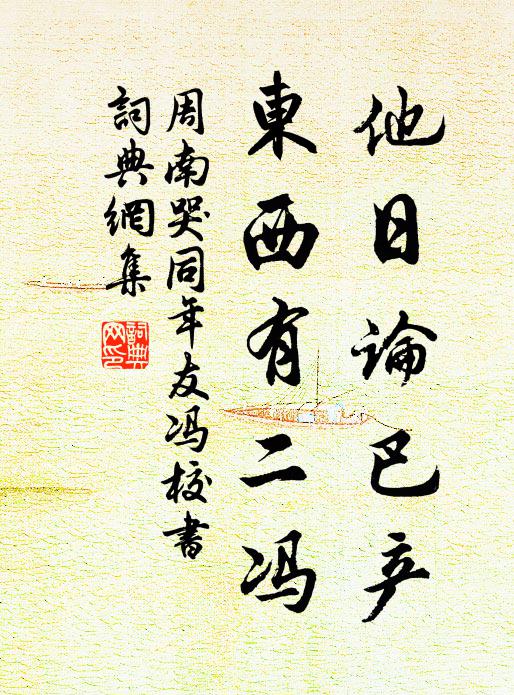 他日論巴产
東西有二冯
周南哭同年友冯校書
詞典網集
詞典网印